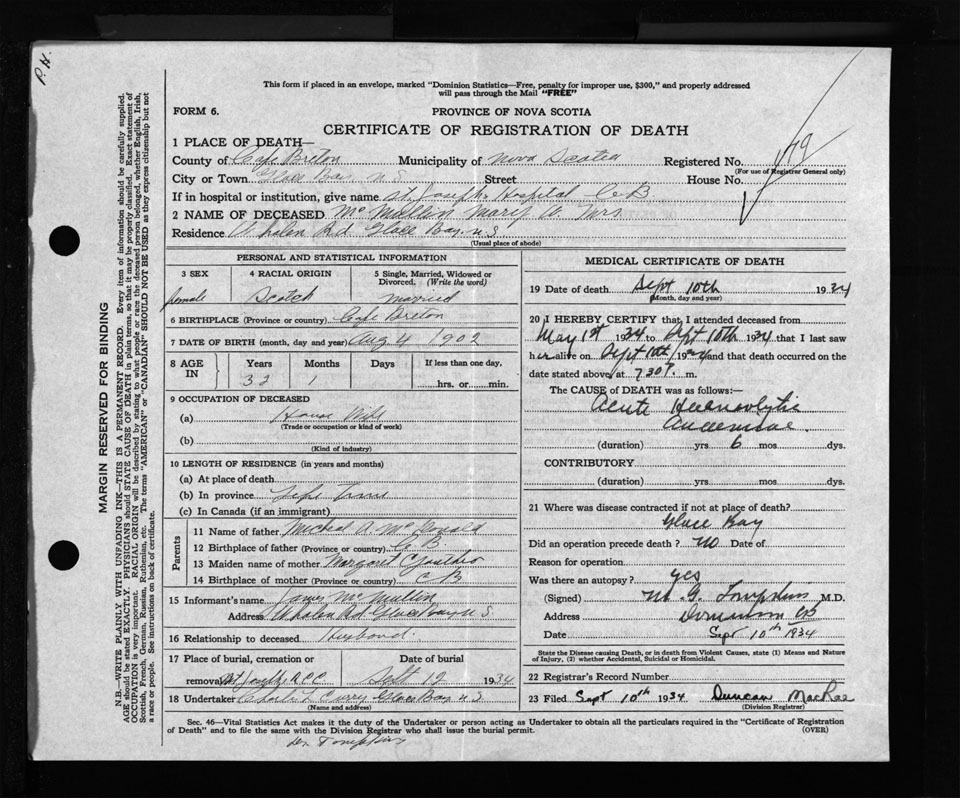 P. H.
This form if placed in an envelope, marked "Dominion Statistics—Free, penalty for improper use, $300," and properly addressed
will pass through the Mail "FREE"
FORM 6.
PROVINCE OF NOVA SCOTIA
CERTIFICATE OF REGISTRATION OF DEATH
1 PLACE OF DEATH—
County of Cape Breton Municipality of Nova Scotia Registered No. 79
(For use of Registrar General only)
City or Town Glace Bay N.S Street House No.
If in hospital or institution, give name St. Joseph Hospital C.B
2 NAME OF DECEASED McMullin Mary A. Mrs.
Residence Whalen Rd Glace Bay N.S
(Usual place of abode)
PERSONAL AND STATISTICAL INFORMATION
3 SEX 4 RACIAL ORIGIN 5 Single, Married, Widowed or Divorced. (Write the word)
female Scotch married
6 BIRTHPLACE (Province or country) Cape Breton
7 DATE OF BIRTH (month, day and year) Aug 4 1902
8 AGE IN Years Months Days If less than one day,
32 1 hrs. or min.
9 OCCUPATION OF DECEASED
(a) House Wife
(Trade or occupation or kind of work)
(b)
(Kind of industry)
10 LENGTH OF RESIDENCE (in years and months)
(a) At place of death
(b) In province Life Time
(c) In Canada (if an immigrant)
Parents
11 Name of father Micheal A. McDonald
12 Birthplace of father (Province or country) C.B.
13 Maiden name of mother Margaret
14 Birthplace of mother (Province or country) C B
15 Informant's name James McMullin
Address Whalen Rd Glace Bay N.S
16 Relationship to deceased Husband.
17 Place of burial, cremation or removal Date of burial
St Josephs R.C.C Sept 12 1934
18 Undertaker Charles L Curry Glace Bay N.S
(Name and address)
MEDICAL CERTIFICATE OF DEATH
19 Date of death Sept 10th 1934
(Month, day and year)
20 I HEREBY CERTIFY that I attended deceased from
May 1st 1934 to Sept 10th 1934 that I last saw
her alive on Sept 10th, 1934 and that death occurred on
date stated above, at 7.30 P. m.
The CAUSE of DEATH was as follows:—
Acute Heamolytic
Aneemiae
(duration) yrs 6 mos dys.
CONTRIBUTORY
(duration) yrs. mos. dys.
21 Where was disease contracted if not at place of death?
Glace Bay
Did an operation precede death? no Date of
Reason for operation
Was there an autopsy? yes
(Signed) M. G. Tompkins M.D.
Address Dominion CB
Date Sept 10th 1934
State the Disease causing Death, or in death from Violent Causes, state (1) Means and Nature
of Injury, (2) whether Accidental, Suicidal or Homicidal.
22 Registrar's Record Number
23 Filed Sept 10th 1934 Duncan MacRae
(Division Registrar)
Sec. 46—Vital Statistics Act makes it the duty of the Undertaker or person acting as Undertaker to obtain all the particulars required in the "Certificate of Registration
of Death" and to file the same with the Division Registrar who shall issue the burial permit. (OVER)
Dr. Tompkins
MARGIN RESERVED FOR BINDING
N.B.—WRITE PLAINLY WITH UNFADING INK—THIS IS A PERMANENT RECORD. Every item of information should be carefully supplied.
AGE should be stated EXACTLY. PHYSICIANS should STATE CAUSE OF DEATH in plain terms, so that it may be properly classified. Exact statement of
OCCUPATION is very important. RACIAL ORIGIN will be described by stating to what people or race the deceased person belonged, whether English, Irish,
Scottish, French, German, Russian, Ruthenian, etc. The terms "AMERICAN" or "CANADIAN" SHOULD NOT BE USED as they express citizenship but not
a race or people. See instructions on back of certificate.